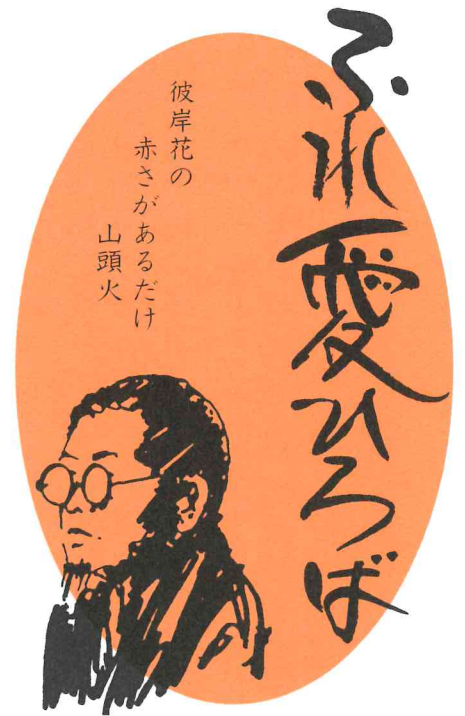 ふれ愛ひろば
彼岸花の
赤さがあるだけ
山頭火